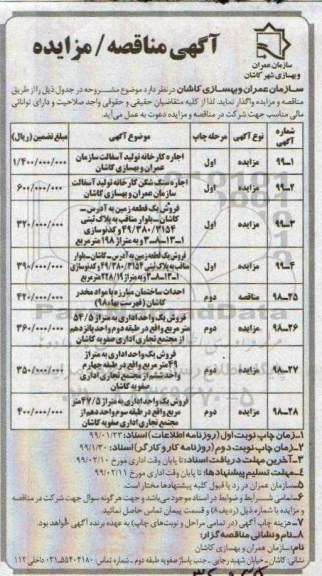 آگهی مناقصه/مزایده
سازمان عمران
و بهسازی شهر کاشان
سازمان عمران و بهسازی کاشان در نظر دارد موضوع مشروحه در جدول ذیل را از طریق
مناقصه و مزایده واگذار نماید. لذا از کلیه متقاضیان حقیقی و حقوقی واجد صلاحیت و دارای توانائی
مالی مناسب جهت شرکت در مناقصه و مزایده دعوت به عمل می‌آید.
شماره آگهی نوع آگهی مرحله چاپ موضوع آگهی مبلغ تضمین (ریال)
۱-۹۹ مزایده اول اجاره کارخانه تولید آسفالت سازمان عمران و بهسازی کاشان ۱/۴۰۰/۰۰۰/۰۰۰
۲-۹۹ مزایده اول اجاره سنگ شکن کارخانه تولید آسفالت سازمان عمران و بهسازی کاشان ۶۰۰/۰۰۰/۰۰۰
۳-۹۹ مزایده اول فروش یک قطعه زمین به آدرس کاشان - بلوار مناقب پلاک ثبتی ۴۹/۳۸۰/۳۱۵۴ و کد نوسازی ۱-۱۳-۸-۳ و به متراژ ۱۹۸ مترمربع ۳۲۰/۰۰۰/۰۰۰
۴-۹۹ مزایده اول فروش یک قطعه زمین به آدرس - کاشان - بلوار مناقب به پلاک ثبتی ۴۹/۳۸۰/۳۱۵۴ و کد نوسازی ۱-۱۳-۸ و به متراژ ۲۲۸/۱۹ مترمربع ۳۹۰/۰۰۰/۰۰۰
۲۵-۹۸ مناقصه دوم احداث ساختمان مبارزه با مواد مخدر کاشان (فهرست بها ۹۸) ۴۲۰/۰۰۰/۰۰۰
۲۶-۹۸ مزایده دوم فروش یک واحد اداری به متراژ ۵۴/۵ متر مربع واقع در طبقه دوم واحد پانزدهم از مجتمع تجاری اداری صفویه کاشان ۳۶۰/۰۰۰/۰۰۰
۲۷-۹۸ مزایده دوم فروش یک واحد اداری به متراژ ۴۹ متر مربع واقع در طبقه چهارم واحد ششم از مجتمع تجاری اداری صفویه کاشان ۳۵۰/۰۰۰/۰۰۰
۲۸-۹۸ مزایده دوم فروش یک واحد اداری به متراژ ۴۷/۵ متر مربع واقع در طبقه سوم واحد دهم از مجتمع تجاری اداری صفویه کاشان ۴۰۰/۰۰۰/۰۰۰
۱- زمان چاپ نوبت اول (روزنامه اطلاعات) اسناد: ۹۹/۰۱/۲۳
۲- زمان چاپ نوبت دوم (روزنامه کار و کارگر) اسناد: ۹۹/۱/۳۰
۳- آخرین مهلت دریافت اسناد: تا پایان وقت اداری مورخ ۹۹/۰۲/۱۰
۴- مهلت تسلیم پیشنهادها: تا پایان وقت اداری مورخ ۹۹/۰۲/۱۱
۵- سازمان عمران در رد یا قبول کلیه پیشنهادها مختار است.
۶- تمامی شرایط و ضوابط در اسناد موجود می‌باشد و جهت هر گونه سوال جهت شرکت در مناقصه
و مزایده با شماره ذیل (ردیف ۸) و قسمت پیمان تماس حاصل نمائید.
۷- هزینه چاپ آگهی (در تمامی مراحل و نوبت‌های چاپ) به عهده برنده آگهی خواهد بود.
۸- نام و نشانی مناقصه گزار:
نام: سازمان عمران و بهسازی کاشان
نشانی: کاشان - خیابان شهید رجایی - جنب پاساژ صفویه طبقه دوم - شماره تماس: ۵۵۴۰۴۱۸۰-۰۳۱ داخلی ۱۱۲